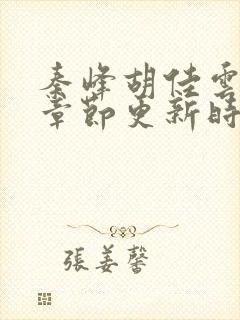 秦峰胡佳雲
章節更新時
張姜馨